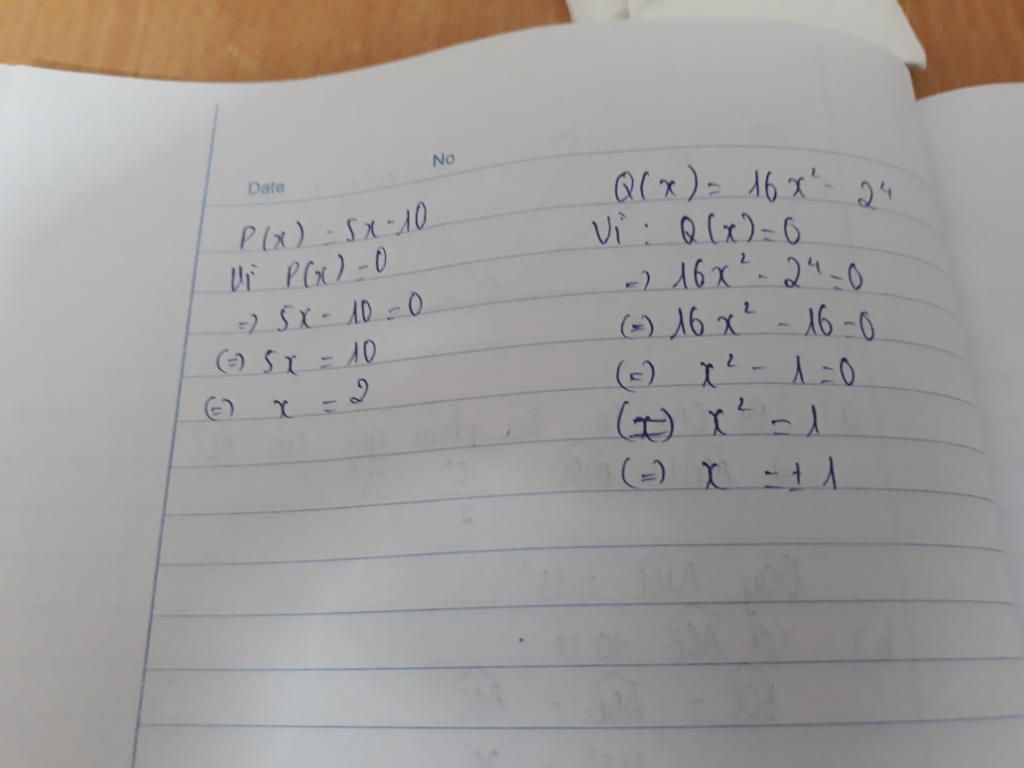 No
Date
P(x) = 5x - 10
Vì P(x) = 0
=) 5x - 10 = 0
(=) 5x = 10
(=) x = 2
Q(x) = 16x² - 2⁴
Vì : Q(x) = 0
=) 16x² - 2⁴ = 0
(=) 16x² - 16 = 0
(=) x² - 1 = 0
(=) x² = 1
(=) x = ± 1